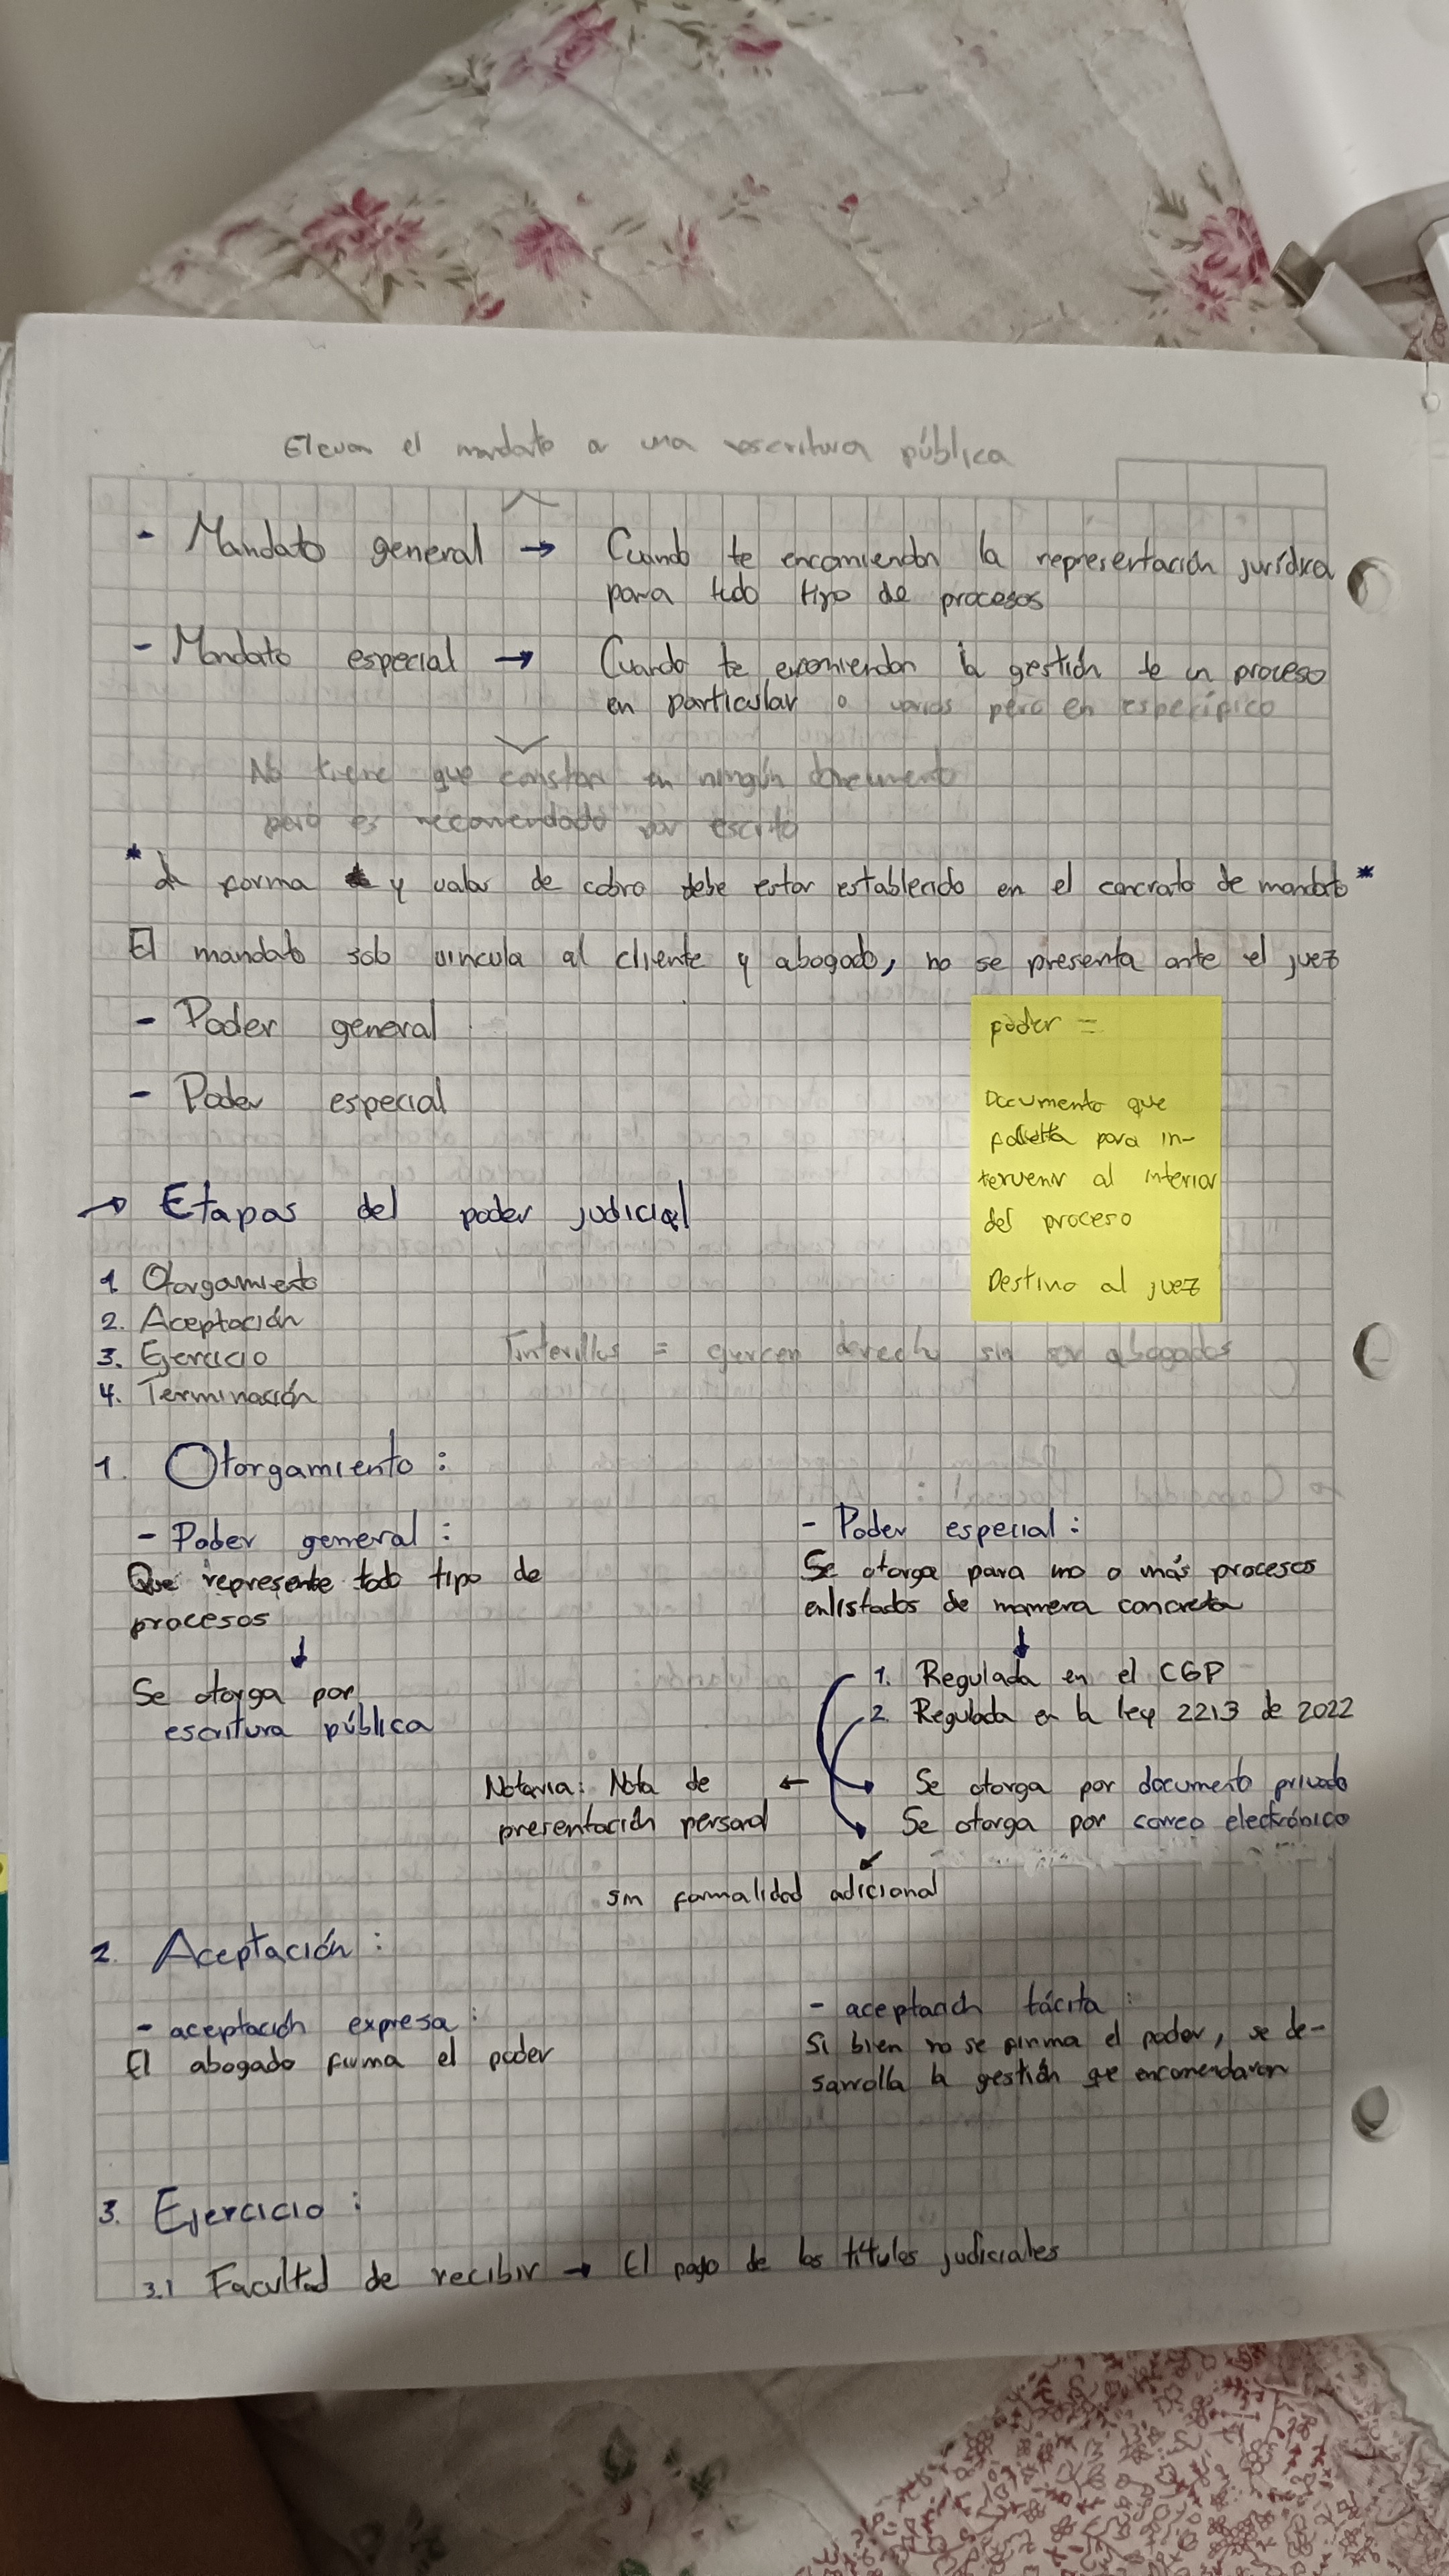 Elevan el mandato a una escritura pública
- Mandato general → Cuando te encomiendan la representación jurídica
para todo tipo de procesos
- Mandato especial → Cuando te encomiendan la gestión de un proceso
en particular o varios pero en específico
No tiene que constar en ningún documento
pero es recomendado por escrito
* La forma y valor de cobro debe estar establecido en el concrato de mandato *
El mandato solo vincula al cliente y abogado, no se presenta ante el juez
- Poder general
- Poder especial
poder =
Documento que
faculta para in-
tervenir al interior
del proceso
Destino al juez
→ Etapas del poder judicial
1. Otorgamiento
2. Aceptación
3. Ejercicio
4. Terminación
Tinterillos = ejercen derecho sin ser abogados
1. Otorgamiento:
- Poder general:
Que represente todo tipo de
procesos
↓
Se otorga por
escritura pública
- Poder especial:
Se otorga para uno o más procesos
enlistados de manera concreta
↓
1. Regulada en el CGP
2. Regulada en la ley 2213 de 2022
Notaria: Nota de ← Se otorga por documento privado
presentación personal Se otorga por correo electrónico
sin formalidad adicional
2. Aceptación:
- aceptación expresa:
El abogado firma el poder
- aceptación tácita:
Si bien no se firma el poder, se de-
sarrolla la gestión que encomendaron
3. Ejercicio:
3.1 Facultad de recibir → El pago de los títulos judiciales